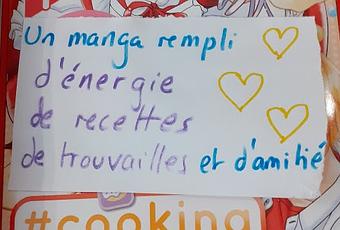 Un manga rempli
d'énergie
de recettes
de trouvailles et d'amitié
#cooking